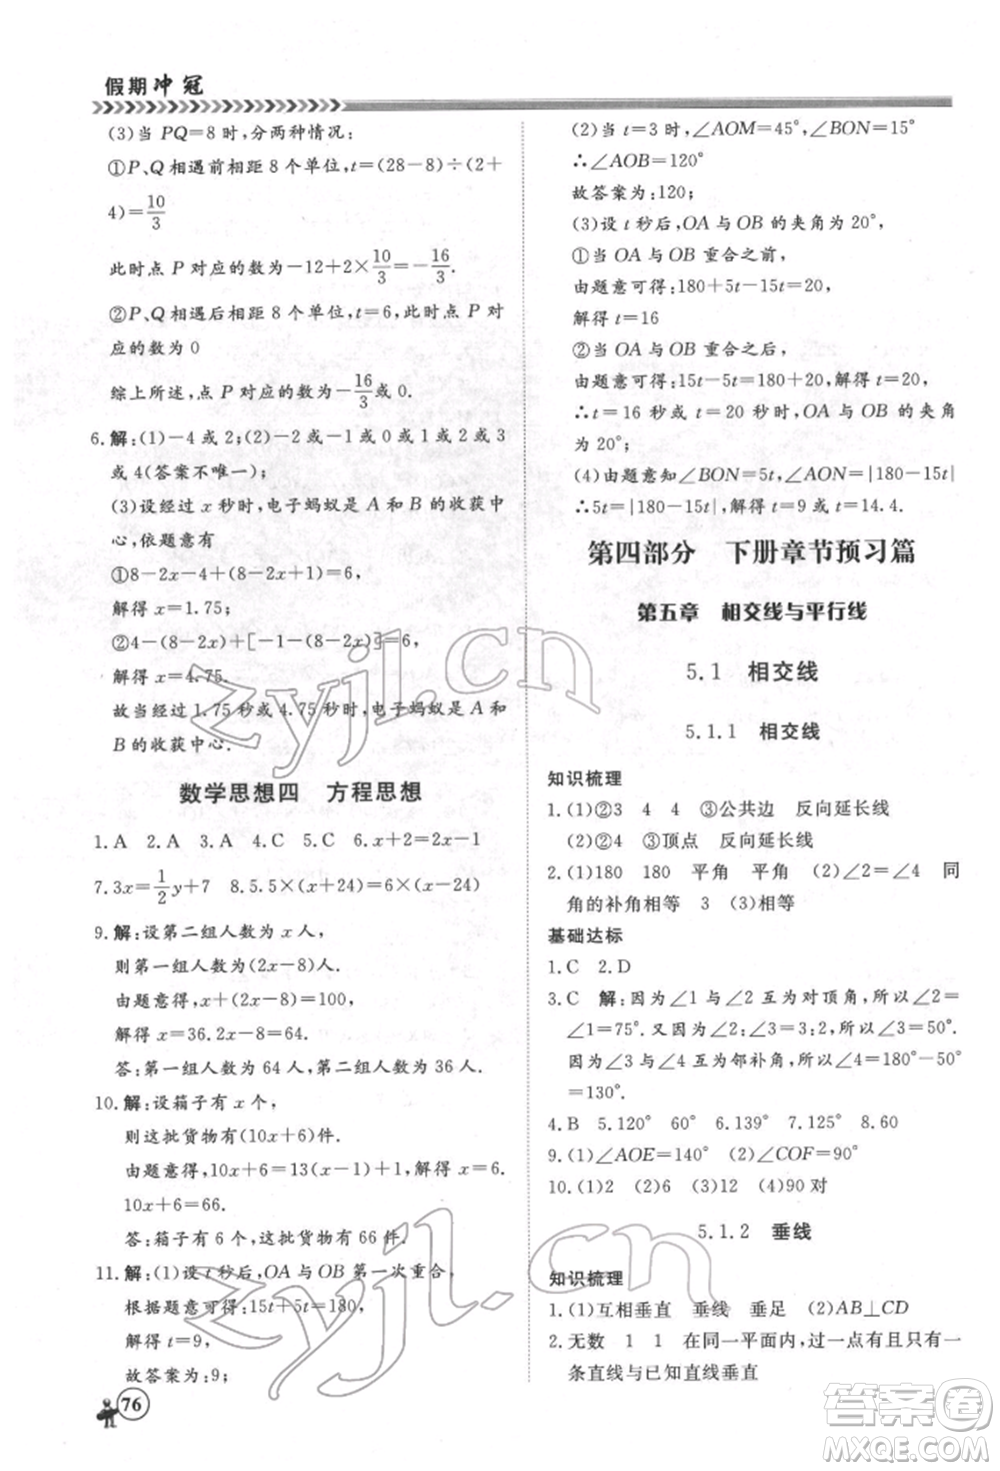 假期冲冠
(3)当 PQ=8 时,分两种情况:
①P、Q 相遇前相距 8 个单位,t=(28-8)÷(2+
4)=10/3
此时点 P 对应的数为-12+2×10/3=-16/3.
②P、Q 相遇后相距 8 个单位,t=6,此时点 P 对
应的数为 0
综上所述,点 P 对应的数为-16/3或 0.
6. 解:(1)-4 或 2;(2)-2 或-1 或 0 或 1 或 2 或 3
或 4(答案不唯一);
(3)设经过 x 秒时,电子蚂蚁是 A 和 B 的收获中
心,依题意有
①8-2x-4+(8-2x+1)=6,
解得 x=1.75;
②4-(8-2x)+[-1-(8-2x)]=6,
解得 x=4.75.
故当经过 1.75 秒或 4.75 秒时,电子蚂蚁是 A 和
B 的收获中心.
数学思想四 方程思想
1. A 2. A 3. A 4. C 5. C 6. x+2=2x-1
7. 3x=1/2y+7 8. 5.5×(x+24)=6×(x-24)
9. 解:设第二组人数为 x 人,
则第一组人数为(2x-8)人.
由题意得,x+(2x-8)=100,
解得 x=36. 2x-8=64.
答:第一组人数为 64 人,第二组人数为 36 人.
10. 解:设箱子有 x 个,
则这批货物有(10x+6)件.
由题意得,10x+6=13(x-1)+1,解得 x=6.
10x+6=66.
答:箱子有 6 个,这批货物有 66 件.
11. 解:(1)设 t 秒后,OA 与 OB 第一次重合,
根据题意可得:15t+5t=180,
解得 t=9,
故答案为:9;
76
(2)当 t=3 时,∠AOM=45°,∠BON=15°
∴∠AOB=120°
故答案为:120;
(3)设 t 秒后,OA 与 OB 的夹角为 20°,
①当 OA 与 OB 重合之前,
由题意可得:180+5t-15t=20,
解得 t=16
②当 OA 与 OB 重合之后,
由题意可得:15t-5t=180+20,解得 t=20,
∴t=16 秒或 t=20 秒时,OA 与 OB 的夹角
为 20°;
(4)由题意知∠BON=5t,∠AON=|180-15t|
∴5t=|180-15t|,解得 t=9 或 t=14.4.
第四部分 下册章节预习篇
第五章 相交线与平行线
5.1 相交线
5.1.1 相交线
知识梳理
1. (1)②3 4 4 ③公共边 反向延长线
(2)②4 ③顶点 反向延长线
2. (1)180 180 平角 平角 (2)∠2 ∠4 同
角的补角相等 3 (3)相等
基础达标
1. C 2. D
3. C 解:因为∠1 与∠2 互为对顶角,所以∠2=
∠1=75°. 又因为∠1=∠2+∠3,所以∠3=50°.
因为∠3 与∠4 互为邻补角,所以∠4=180°-50°
=130°.
4. B 5. 120° 60° 6. 139° 7. 125° 8. 60
9. (1)∠AOE=140° (2)∠COF=90°
10. (1)2 (2)6 (3)12 (4)90 对
5.1.2 垂线
知识梳理
1. (1)互相垂直 垂线 垂足 (2)AB⊥CD
2. 无数 1 1 在同一平面内,过一点有且只有一
条直线与已知直线垂直
zyjl.cn
zyjl.cn
答案圈
MXQE.COM